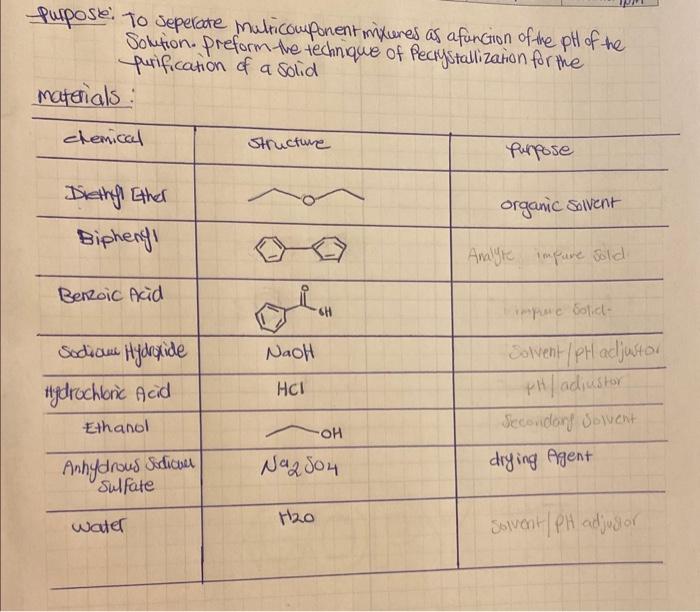 Purpose: To seperate multicomponent mixures as a function of the pH of the
Solution. Preform the technique of Recrystallization for the
purification of a solid
materials:
chemical structure purpose
Diethyl Ether O organic solvent
Biphenyl Analyte impure solid
Benzoic Acid O OH impure solid
Sodium Hydroxide NaOH Solvent/pH adjustor
Hydrochloric Acid HCl pH/adjustor
Ethanol OH Secondary Solvent
Anhydrous Sodium Na2SO4 drying Agent
Sulfate
water H2O Solvent/pH adjustor